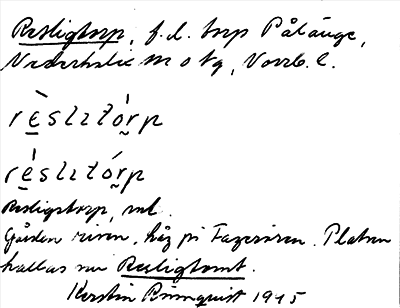 Resligtorp, f.d. torp Pålänge,
Nederkalix sn o tg, Norrb. l.
rèslιtórp
réslιtórp
Resligstorp, ml.
Gården riven, låg på Fagerören. Platsen
kallas nu Resligtomt.
Kerstin Brännquist 1945